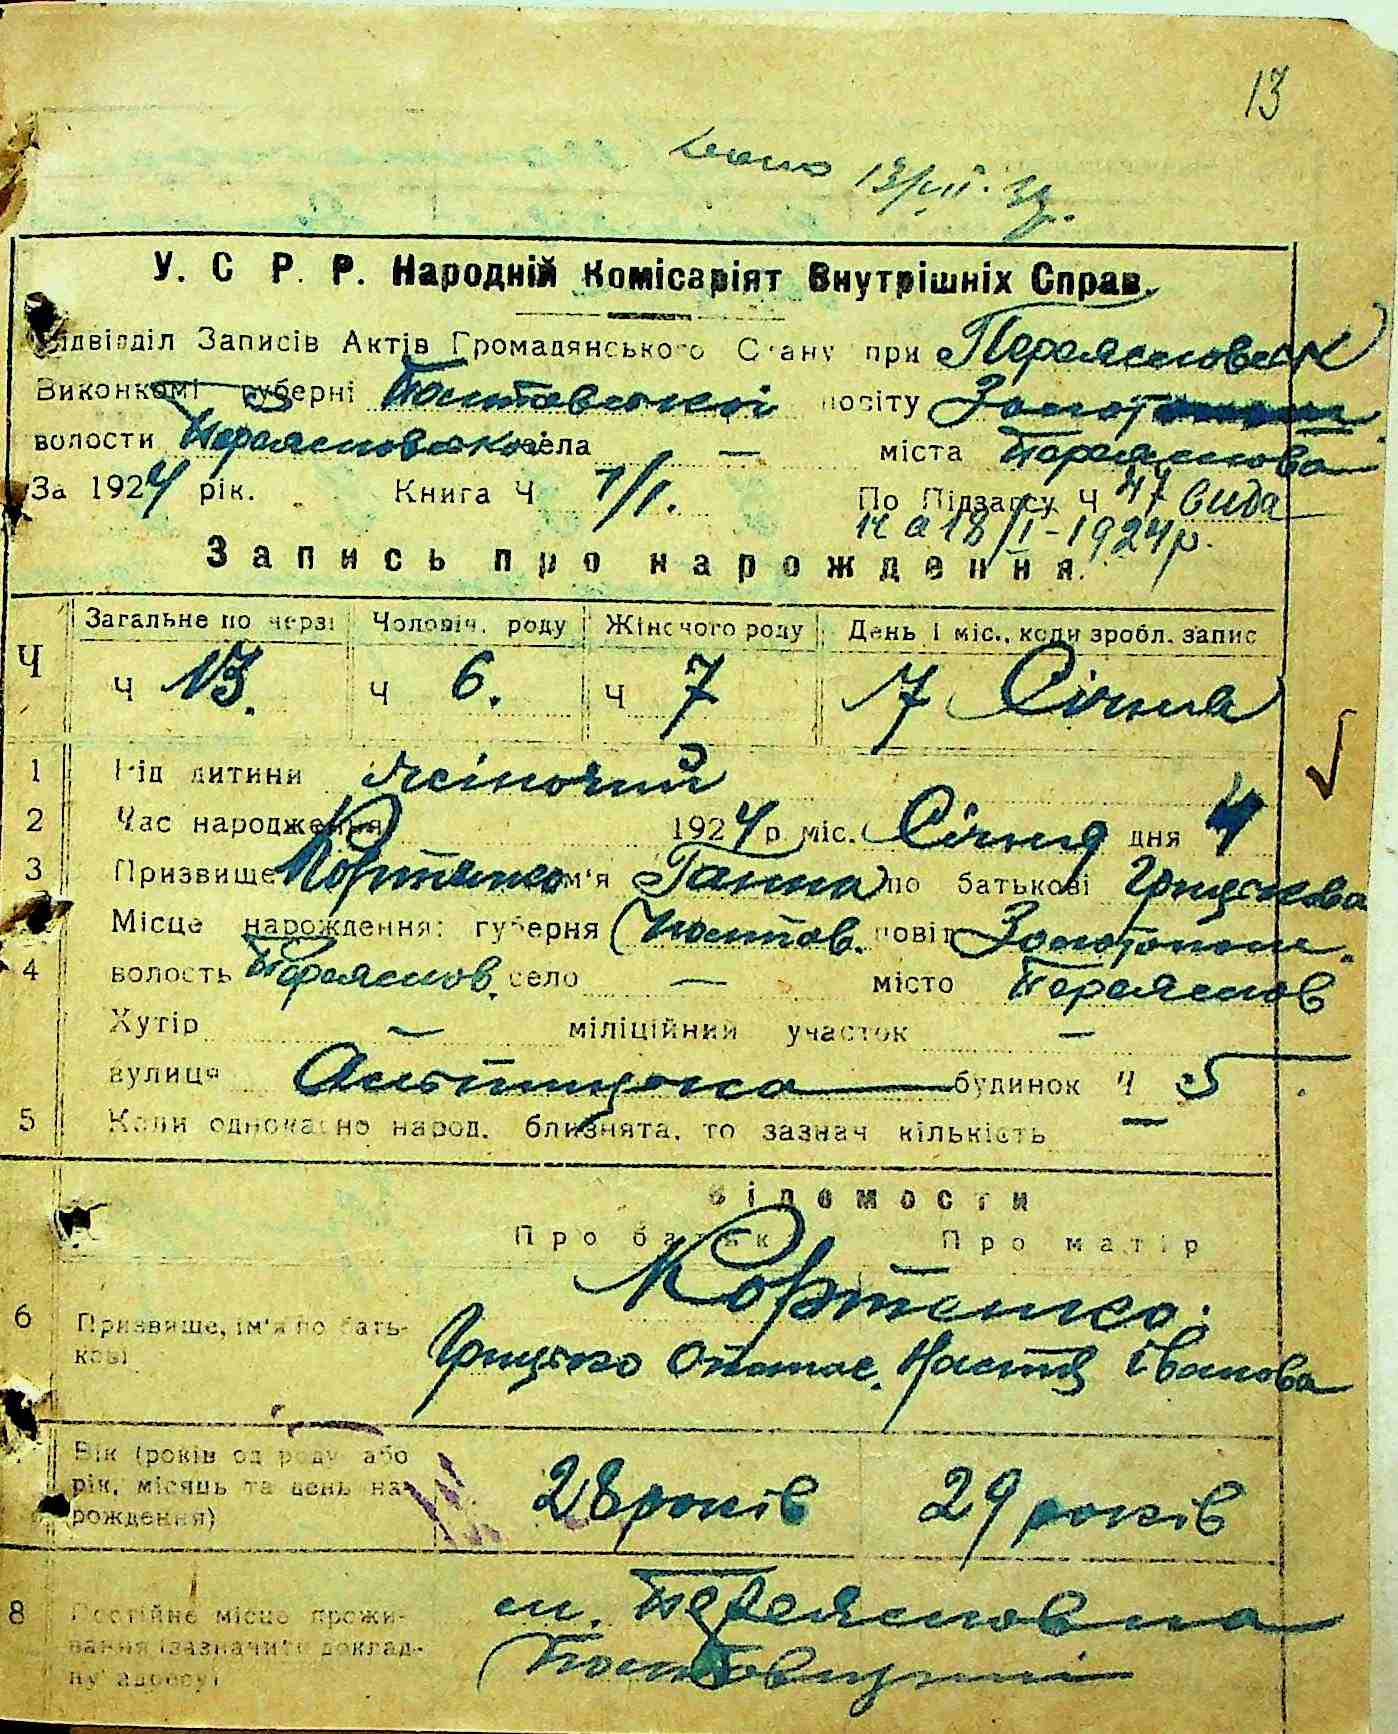 13
13/VII. 37.
У. С Р. Р. Народній Комісаріят Внутрішніх Справ.
Підвідділ Записів Актів Громадянського Стану при Переяславськ
Виконкомі губерні Полтавської повіту Золот
волости Переяславської села — міста Переяслова
За 1924 рік. Книга Ч 1/1. По Підзагсу Ч 47 вида
на 18/I-1924р.
Запись про нарождення.
Ч Загальне по черзі Чоловіч. роду Жіночого роду День і міс., коли зробл. запис
Ч 13. Ч 6. Ч 7 7 Січня
1 Рід дитини жіночий
2 Час народження 1924 р міс. Січня дня 4
3 Призвище Кортенко ім'я Ганна по батькові Грицькова
Місце нарождення: губерня Полтав. повіт Золотонош.
4 волость Переяслов. село — місто Переяслов
Хутір — міліційний участок —
вулиця будинок Ч 5
5 Коли одночасно народ. близнята, то зазнач кількість —
Відомости
Про батьк Про матір
Кортенко.
6 Призвище, ім'я по бать-
кові
Грицько Опанас. Настя Іванова
Вік (років од роду або
рік, місяць та день на-
рождення)
28 років 29 років
8 Постійне місце прожи-
вання (зазначити доклад-
ну адресу)
м. Переяслов на
Полтавщині